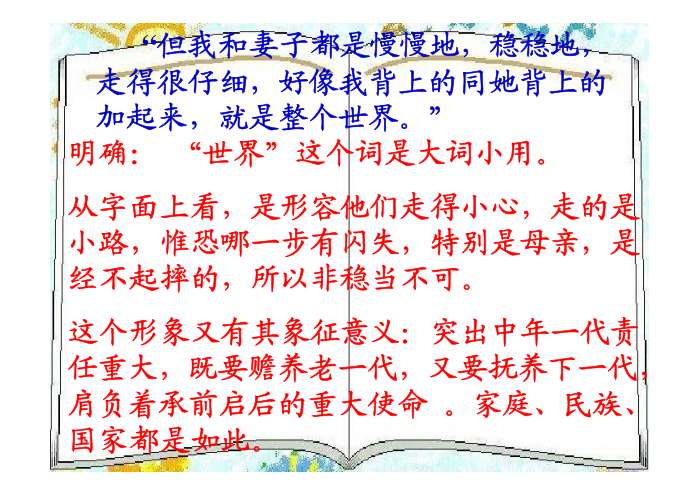 “但我和妻子都是慢慢地，稳稳地，
走得很仔细，好像我背上的同她背上的
加起来，就是整个世界。”
明确： “世界”这个词是大词小用。
从字面上看，是形容他们走得小心，走的是
小路，惟恐哪一步有闪失，特别是母亲，是
经不起摔的，所以非稳当不可。
这个形象又有其象征意义：突出中年一代责
任重大，既要赡养老一代，又要抚养下一代，
肩负着承前启后的重大使命 。家庭、民族、
国家都是如此。